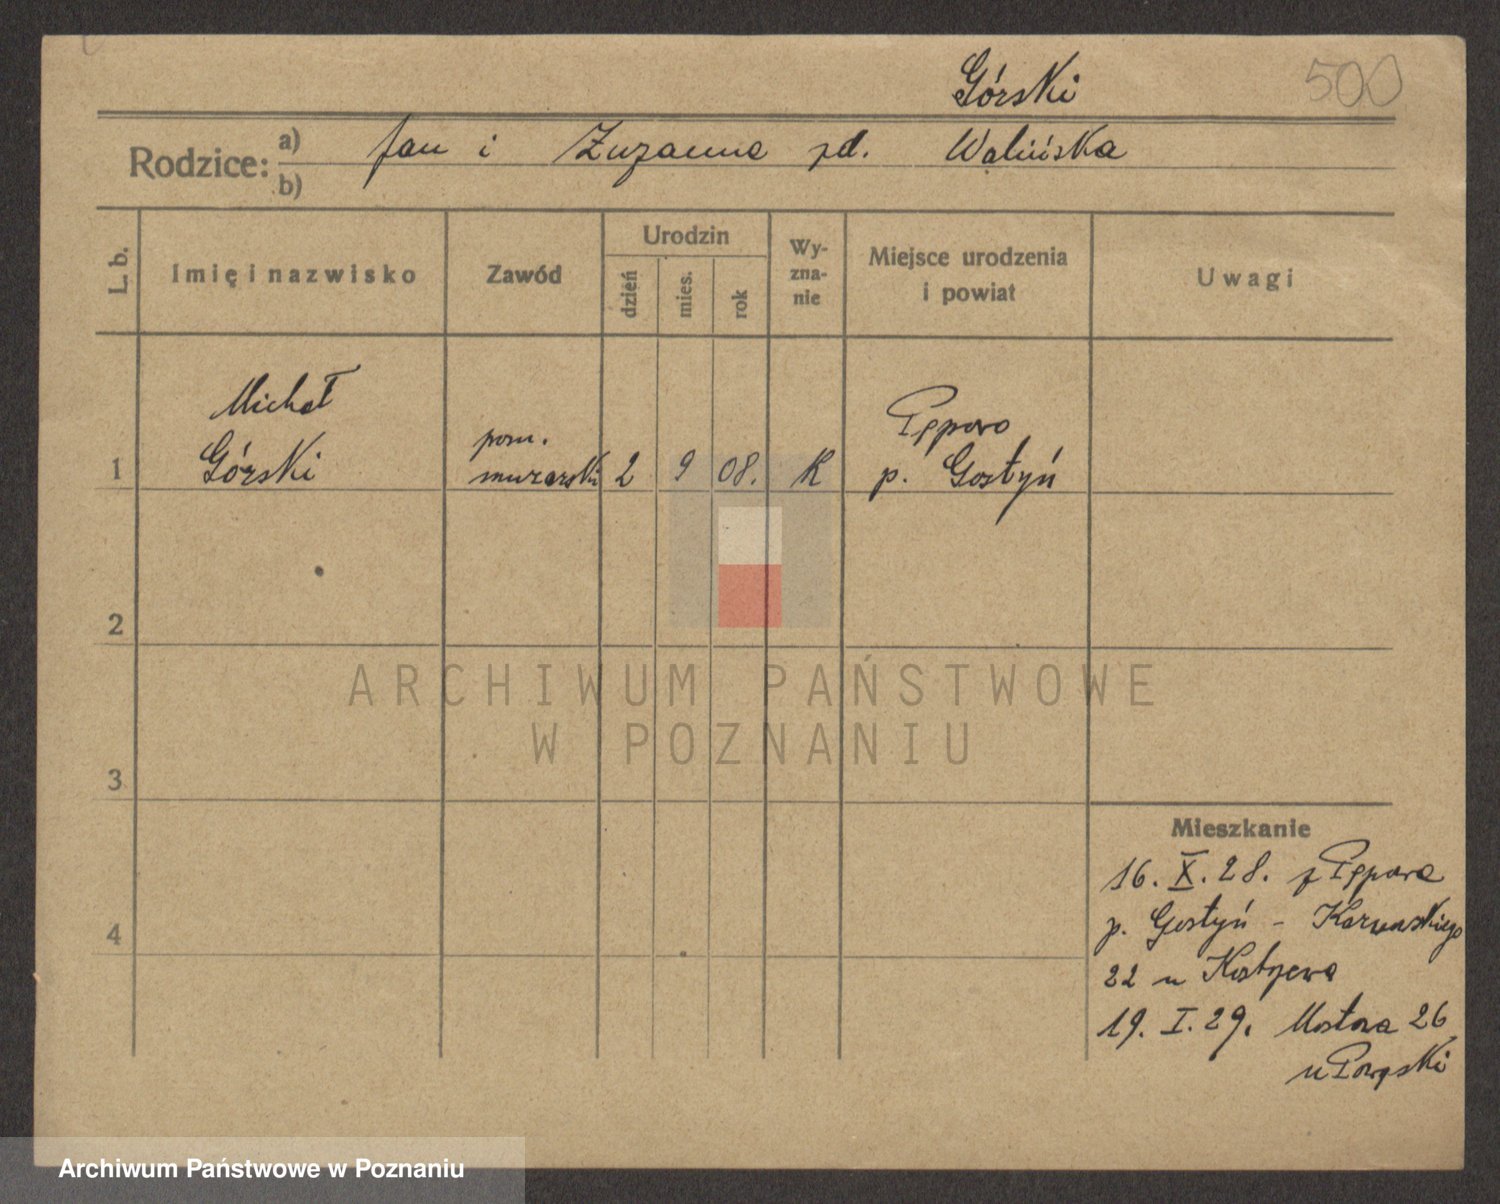 Górski 500
Rodzice: a) Jan i Zuzanna zd. Walińska
b)
L. b.
Imię i nazwisko
Zawód
Urodzin
dzień
mies.
rok
Wy-
zna-
nie
Miejsce urodzenia
i powiat
Uwagi
Michał
Górski
pom.
murarski
1
2 9 08. K
Pępowo
p. Gostyń
2
3
4
Mieszkanie
16. X. 28. z Pępowa
p. Gostyń -
22 u
19. I. 29. Mostowa 26
u
ARCHIWUM PAŃSTWOWE
W POZNANIU
Archiwum Państwowe w Poznaniu